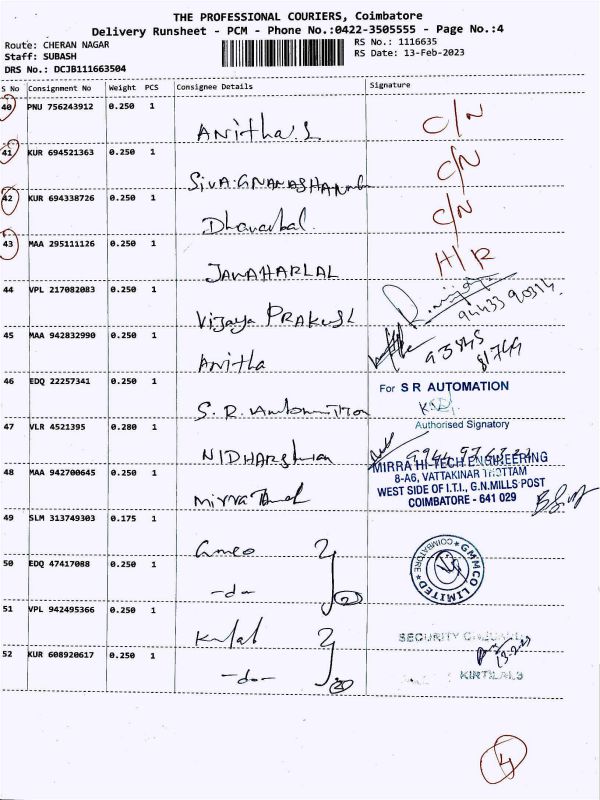 THE PROFESSIONAL COURIERS, Coimbatore
Delivery Runsheet - PCM - Phone No.:0422-3505555 - Page No.:4
Route: CHERAN NAGAR RS No.: 1116635
Staff: SUBASH RS Date: 13-Feb-2023
DRS No.: DCJB111663504
S No Consignment No Weight PCS Consignee Details Signature
40 PNU 756243912 0.250 1
Anitha.S C/N
41 KUR 694521363 0.250 1
SIVA.GNANASHANAB C/N
42 KUR 694338726 0.250 1
Dhanabal. C/N
43 MAA 295111126 0.250 1
JAWAHARLAL H/R
44 VPL 217082083 0.250 1
Vijaya PRAKASH 94433 90314.
45 MAA 942832990 0.250 1
Anitha 93445 81749
46 EDQ 22257341 0.250 1
For S R AUTOMATION
S.R. Automation
Authorised Signatory
47 VLR 4521395 0.280 1
NIDHARSHAN
48 MAA 942700645 0.250 1
MIRRA HI-TECH ENGINEERING
8-A6, VATTAKINAR THOTTAM
WEST SIDE OF I.T.I., G.N.MILLS POST
COIMBATORE - 641 029
Mirra
49 SLM 313749303 0.175 1
50 EDQ 47417088 0.250 1
GMMCO LIMITED * COIMBATORE *
-do- 2
51 VPL 942495366 0.250 1
SECURITY
52 KUR 608920617 0.250 1
13-2-23
-do- 2
KIRTILALS
4